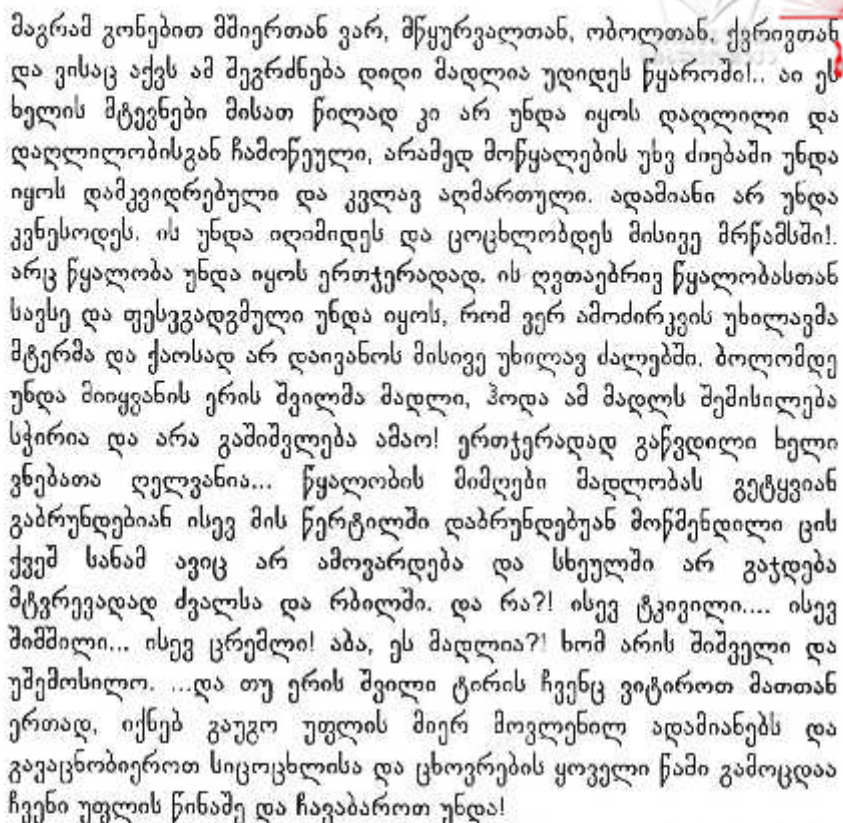 მაგრამ გონებით მშიერთან ვარ, მწყურვალთან, ობოლთან, ქვრივთან
და ვისაც აქვს ამ შეგრძნება დიდი მადლია უდიდეს წყაროში!.. აი ეს
ხელის მტევნები მისათ წილად კი არ უნდა იყოს დაღლილი და
დაღლილობისგან ჩამოწეული, არამედ მოწყალების უხვ ძიებაში უნდა
იყოს დამკვიდრებული და კვლავ აღმართული. ადამიანი არ უნდა
კვნესოდეს. ის უნდა იღიმიდეს და ცოცხლობდეს მისივე მრწამსში!.
არც წყალობა უნდა იყოს ერთჯერადად. ის ღვთაებრივ წყალობასთან
სავსე და ფესვგადგმული უნდა იყოს, რომ ვერ ამოძირკვის უხილავმა
მტერმა და ქაოსად არ დაივანოს მისივე უხილავ ძალებში. ბოლომდე
უნდა მიიყვანის ერის შვილმა მადლი, ჰოდა ამ მადლს შემისილება
სჭირია და არა გაშიშვლება ამაო! ერთჯერადად გაწვდილი ხელი
ვნებათა ღელვანია... წყალობის მიმღები მადლობას გეტყვიან
გაბრუნდებიან ისევ მის წერტილში დაბრუნდებუან მოწმენდილი ცის
ქვეშ სანამ ავიც არ ამოვარდება და სხეულში არ გაჯდება
მტვრევადად ძვალსა და რბილში. და რა?! ისევ ტკივილი.... ისევ
შიმშილი... ისევ ცრემლი! აბა, ეს მადლია?! ხომ არის შიშველი და
უშემოსილო. ...და თუ ერის შვილი ტირის ჩვენც ვიტიროთ მათთან
ერთად, იქნებ გაუგო უფლის მიერ მოვლენილ ადამიანებს და
გავაცნობიეროთ სიცოცხლისა და ცხოვრების ყოველი წამი გამოცდაა
ჩვენი უფლის წინაშე და ჩავაბაროთ უნდა!